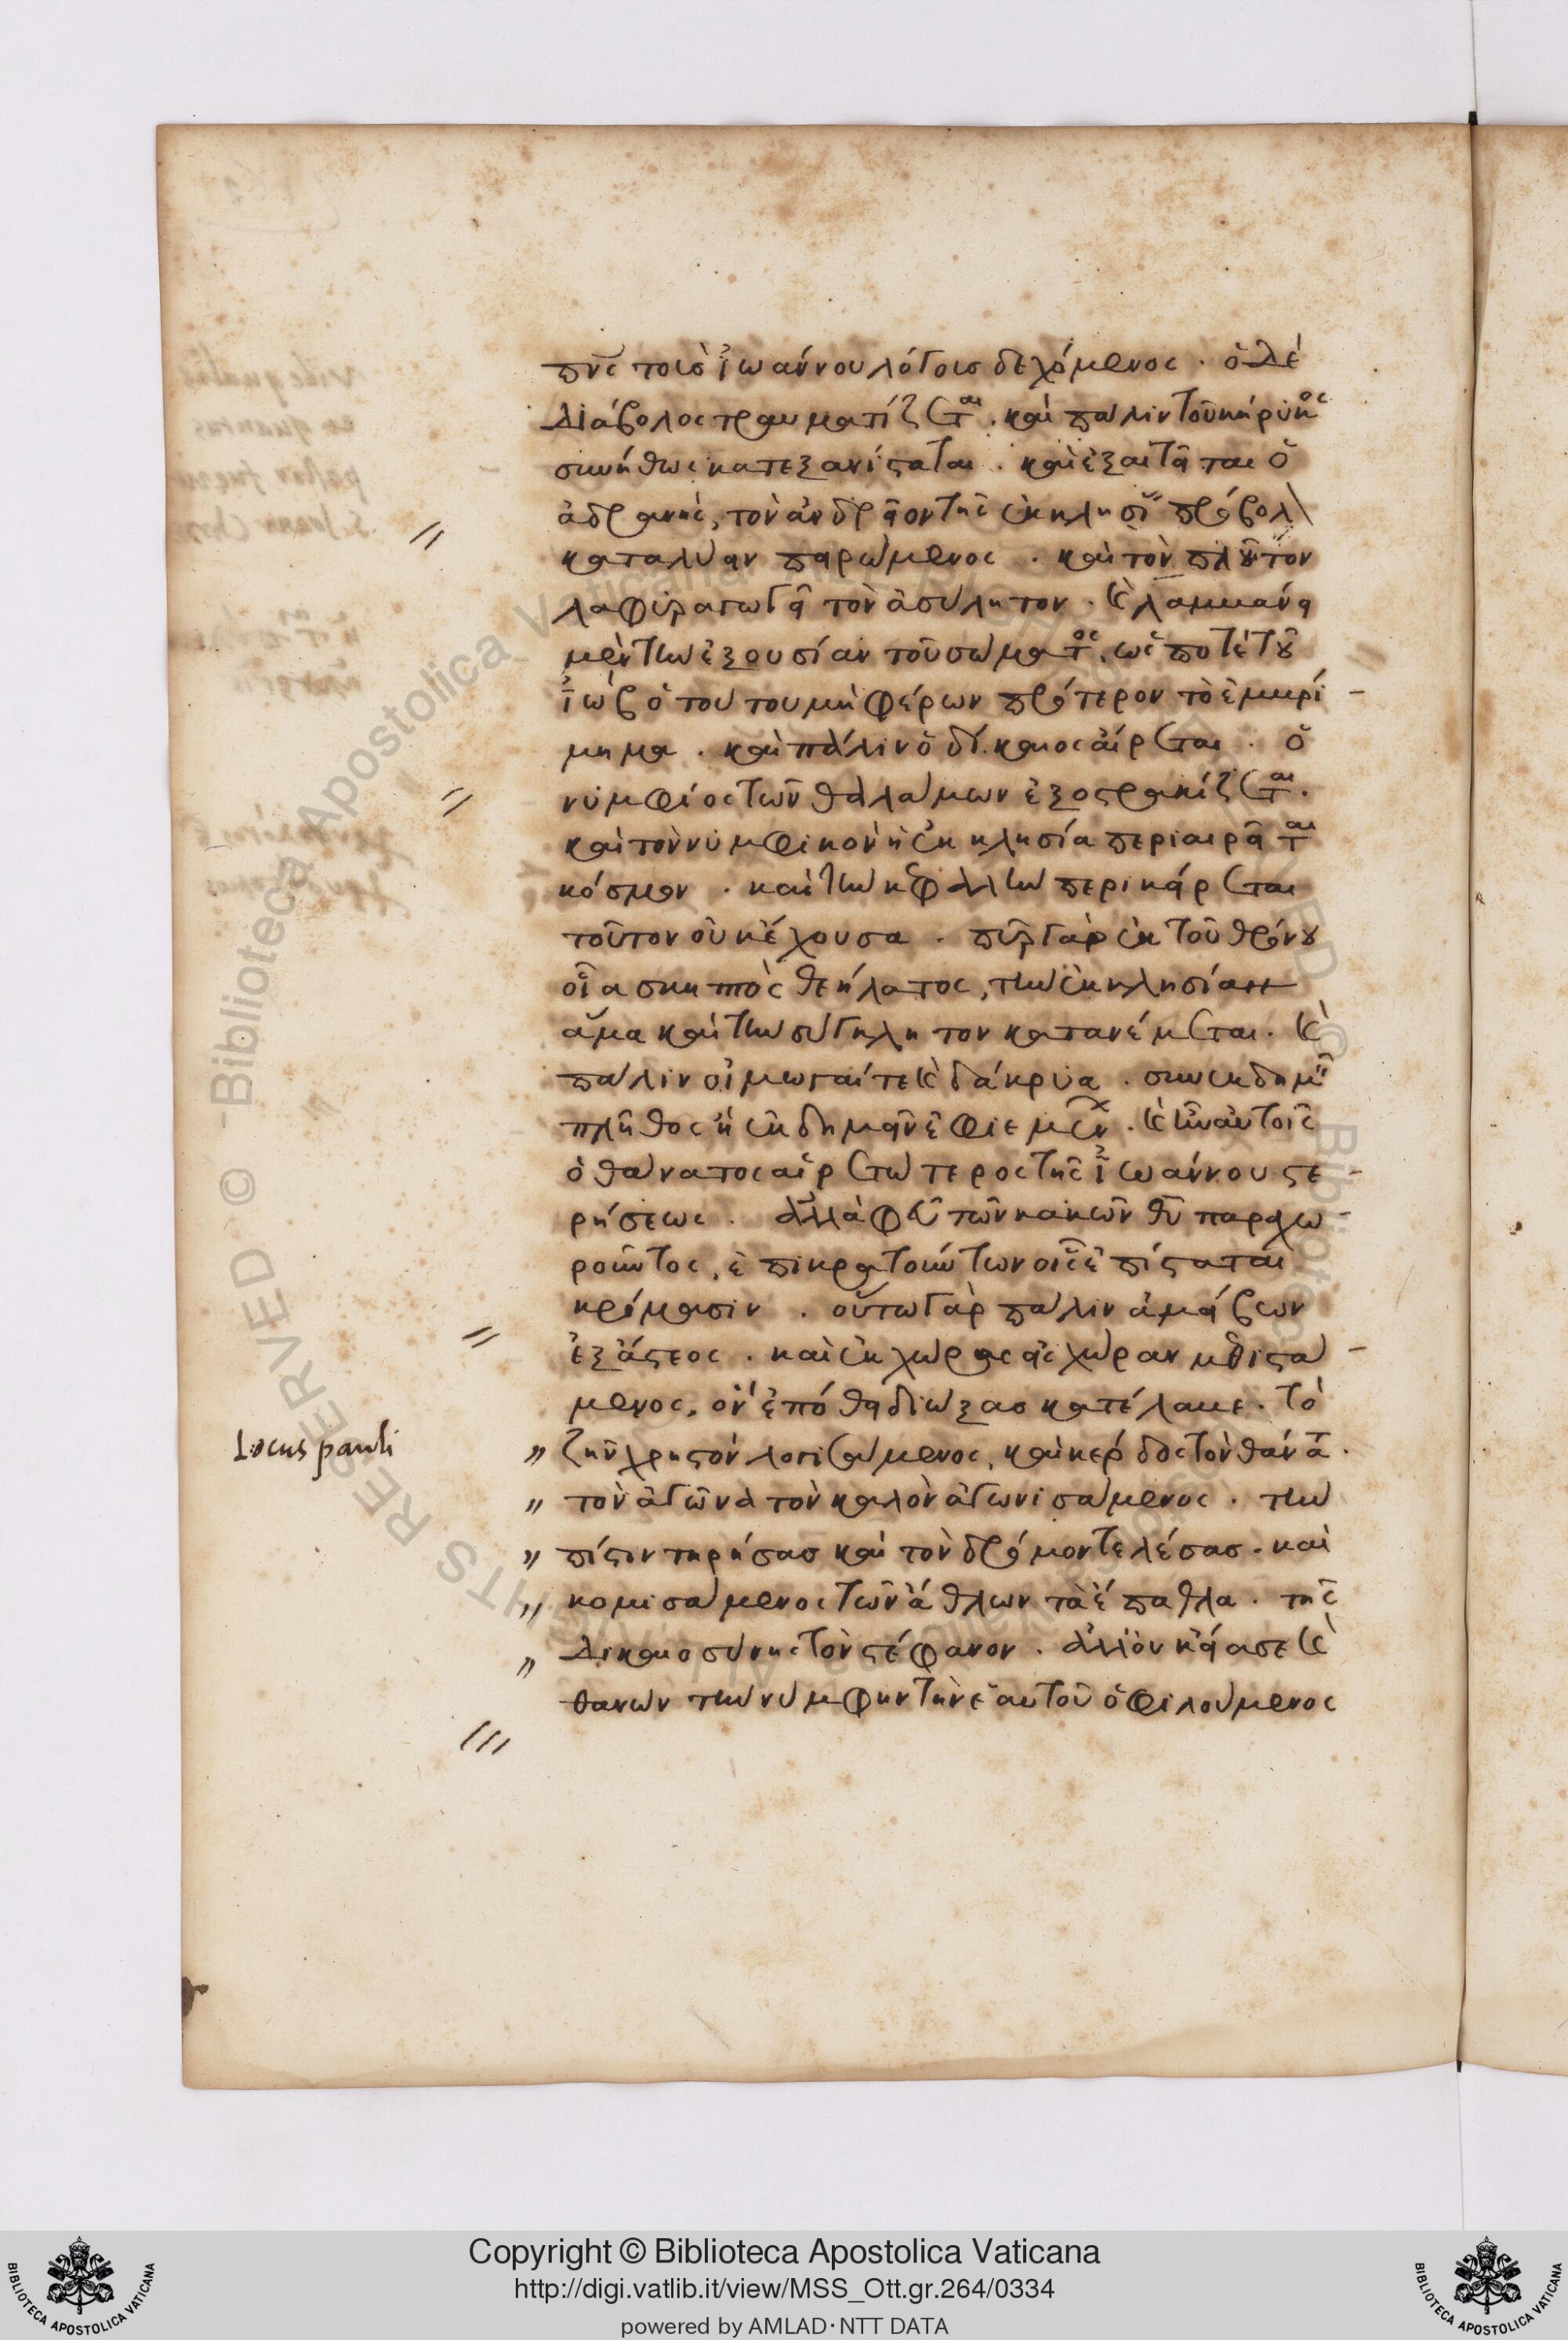 πν̅ς τοῖσ ἰωάννου λόγοισ δεχόμενος . ὁ δὲ
διάβολος τραυματίζεται . καὶ πάλιν τοῦ κήρυκος
συνήθως κατεξανίσταται . καὶ ἐξαιτεῖται ὁ
ἀδρανὴς, τὸν ἀνδρεῖον τῆς ἐκκλησίας πρόβολ
καταλύειν πειρώμενος . καὶ τὸν πλοῦτον
λαφυραγωγεῖ τὸν ἀσύλητον . καὶ λαμβάνει
μὲν τὴν ἐξουσίαν τοῦ σώματος, ὥς ποτε τοῦ
ἰὼβ ὁ τούτου μὴ φέρων πρότερον τὸ ἐμμερί
μημα . καὶ πάλιν ὁ δίκαιος αἴρεται . ὁ
νυμφίος τῶν θαλάμων ἐξοστρακίζεται .
καὶ τὸν νυμφικὸν ἡ ἐκκλησία περιαιρεῖται
κόσμον . καὶ τὴν κεφαλὴν περικείρεται
τοῦτον οὐκ ἔχουσα . πῦρ γὰρ ἐκ τοῦ θρόνου
οἷα σκηπτὸς θεήλατος, τὴν ἐκκλησίαν
ἅμα καὶ τὴν σύγκλητον κατανέμεται . καὶ
πάλιν οἰμωγαί τε καὶ δάκρυα . συνεκδημεῖ
πλῆθος ἢ ἐκδημεῖν ἐφιέμενον . καὶ ἦν αὐτοῖς
ὁ θάνατος αἱρετώτερος τῆς ἰωάννου στε
ρήσεως . ἀλλὰ φεῦ τῶν κακῶν θῦ παραχω
ροῦντος, ἐπικρατούντων οἷς ἐπίσταται
κρίμασιν . οὕτω γὰρ πάλιν ἀμείβων
ἐξ ἄστεος . καὶ ἐκ χώρας εἰς χώραν μεθιστά
μενος, ὃν ἐπόθει διώξασ κατέλαβε . τὸ
" ζῆν χριστὸν λογισάμενος, καὶ κέρδος τὸν θάνατον .
" τὸν ἀγῶνα τὸν καλὸν ἀγωνισάμενος . τὴν
" πίστιν τηρήσασ καὶ τὸν δρόμον τελέσασ . καὶ
" κομισάμενος τῶν ἄθλων τὰ ἔπαθλα . τῆς
" δικαιοσύνης τὸν στέφανον . ἀλλ' οὐκ εἴασε καὶ
θανὼν τὴν νύμφην τὴν ἑαυτοῦ ὁ φιλούμενος
Locus pauli
Copyright © Biblioteca Apostolica Vaticana
http://digi.vatlib.it/view/MSS_Ott.gr.264/0334
powered by AMLAD·NTT DATA
BIBLIOTECA APOSTOLICA VATICANA
BIBLIOTECA APOSTOLICA VATICANA